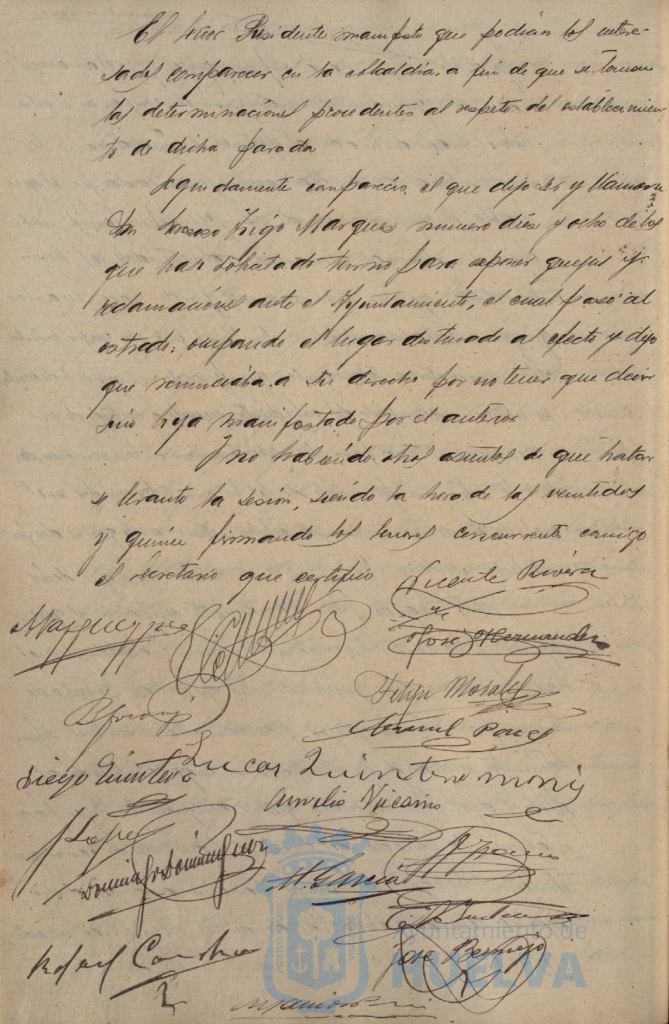 El Señor Presidente manifesto que podian los intere-
sados comparecer en la Alcaldia, a fin de que se toman
las determinaciones procedentes al respeto del establecimien-
to de dicha parada
Seguidamente comparecio el que dijo ser y llamarse
Don Trigo Marquez numero dies y ocho de los
que han solicitado turno para esponer quejas y
reclamaciones ante el Ayuntamiento, el cual pasó al
estrado, ocupando el lugar destinado al efecto y dijo
que renunciaba a su derecho por no tener que decir
sino lo ya manifestado por el anterior
Y no habiendo otros asuntos de que tratar
se levanto la sesión, siendo la hora de las veintidos
y quince firmando los señores concurrentes conmigo
el Secretario que certifico
Vicente Rivera
José Hernandez
Felipe Morales
Manuel Ponce
Diego Quintero
Lucas Quintero
Aurelio Vizcaino
J Lopez
Domingo Dominguez
M. Garcia
Rafael Concha
José Bermejo
Ayuntamiento de
HUELVA